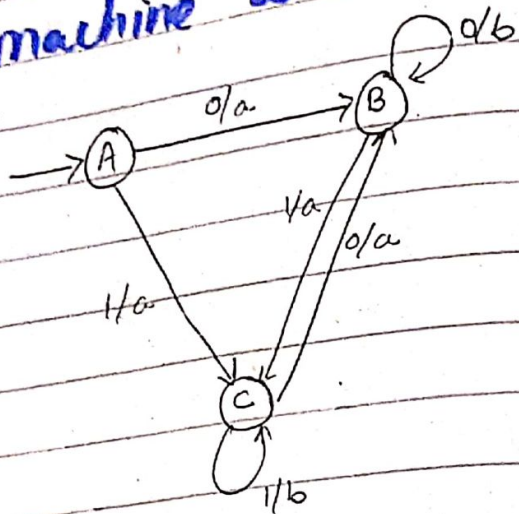 machine
0/b
0/a
B
A
1/a
0/a
1/a
C
1/b